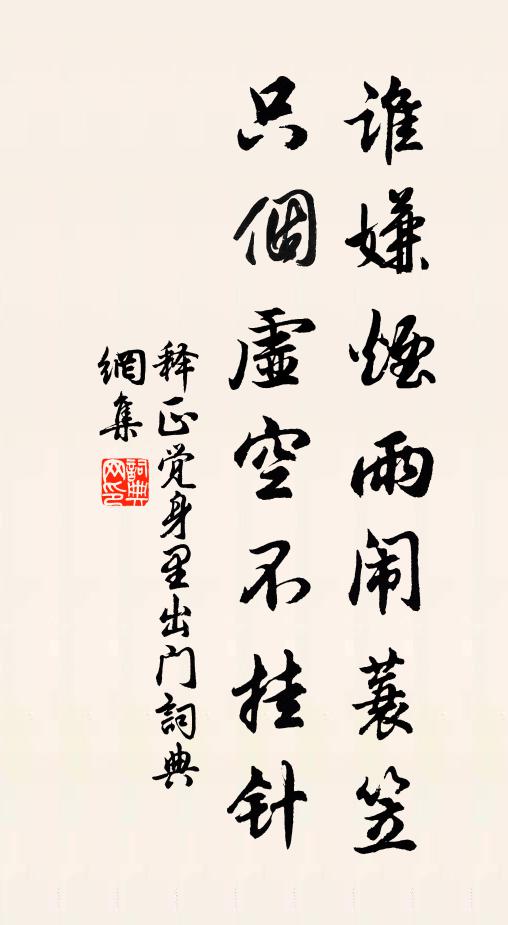 谁嫌煙雨闹蓑笠
只個虛空不挂针
释正觉身里出门詞典
網集
詞典网印